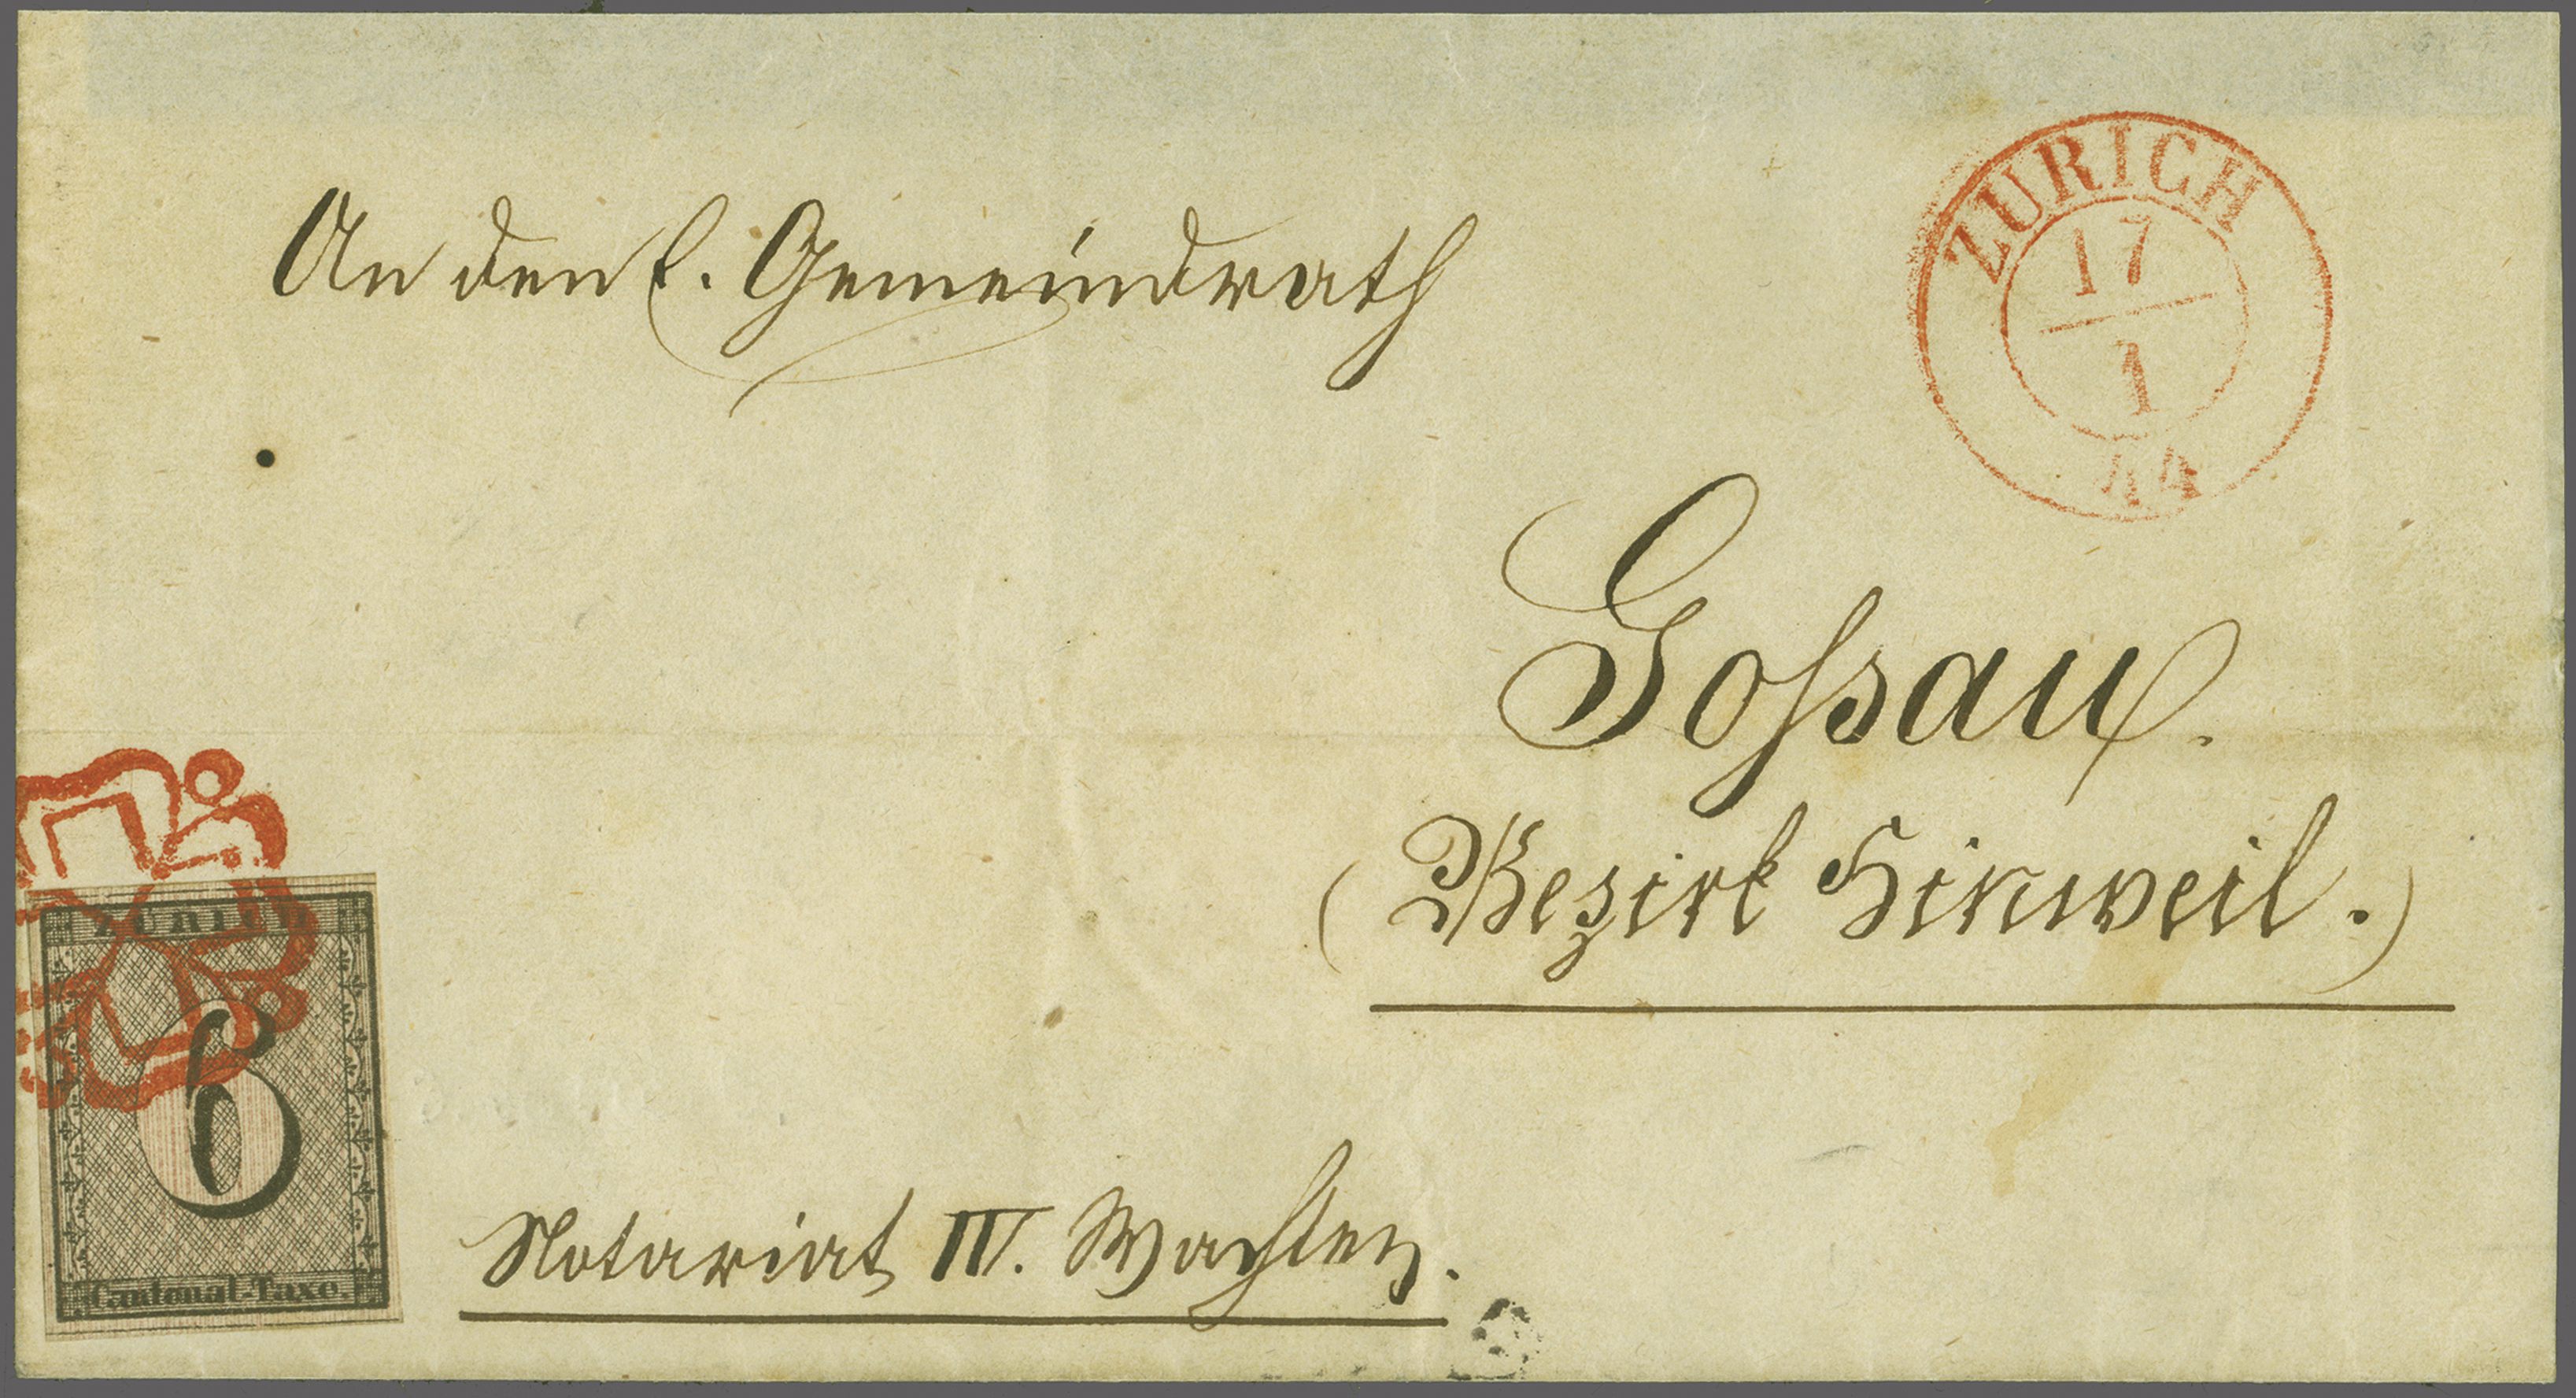 ZURICH
17
1
44
An den l. Gemeindrath
Goſsau.
(Bezirk Hinweil.)
ZÜRICH
6
Cantonal-Taxe.
Notariat IV. Wachten.